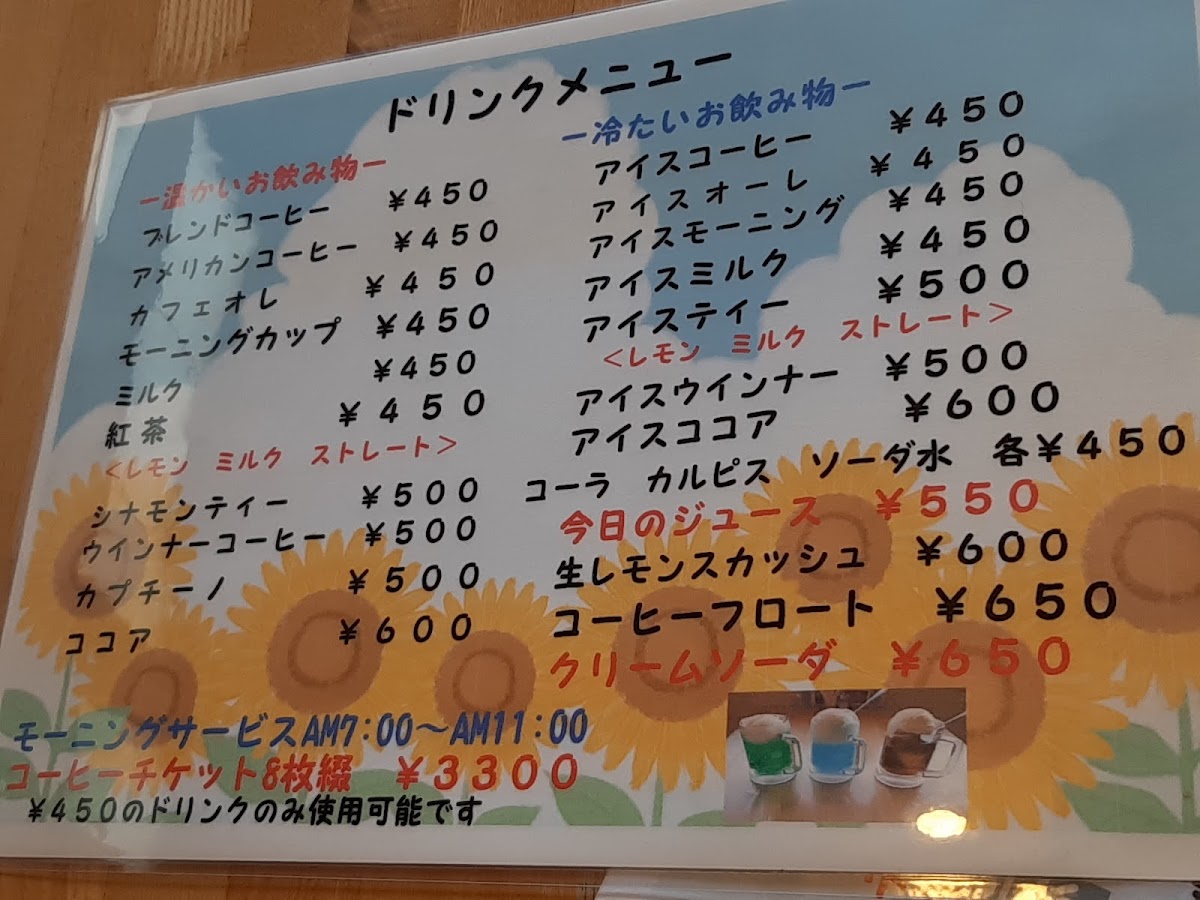 ドリンクメニュー
ー温かいお飲み物ー
ブレンドコーヒー ¥450
アメリカンコーヒー ¥450
カフェオレ ¥450
モーニングカップ ¥450
ミルク ¥450
紅茶 ¥450
<レモン ミルク ストレート>
シナモンティー ¥500
ウインナーコーヒー ¥500
カプチーノ ¥500
ココア ¥600
ー冷たいお飲み物ー
アイスコーヒー ¥450
アイスオーレ ¥450
アイスモーニング ¥450
アイスミルク ¥450
アイスティー ¥500
<レモン ミルク ストレート>
アイスウインナー ¥500
アイスココア ¥600
コーラ カルピス ソーダ水 各¥450
今日のジュース ¥550
生レモンスカッシュ ¥600
コーヒーフロート ¥650
クリームソーダ ¥650
モーニングサービスAM7:00～AM11:00
コーヒーチケット8枚綴 ¥3300
¥450のドリンクのみ使用可能です